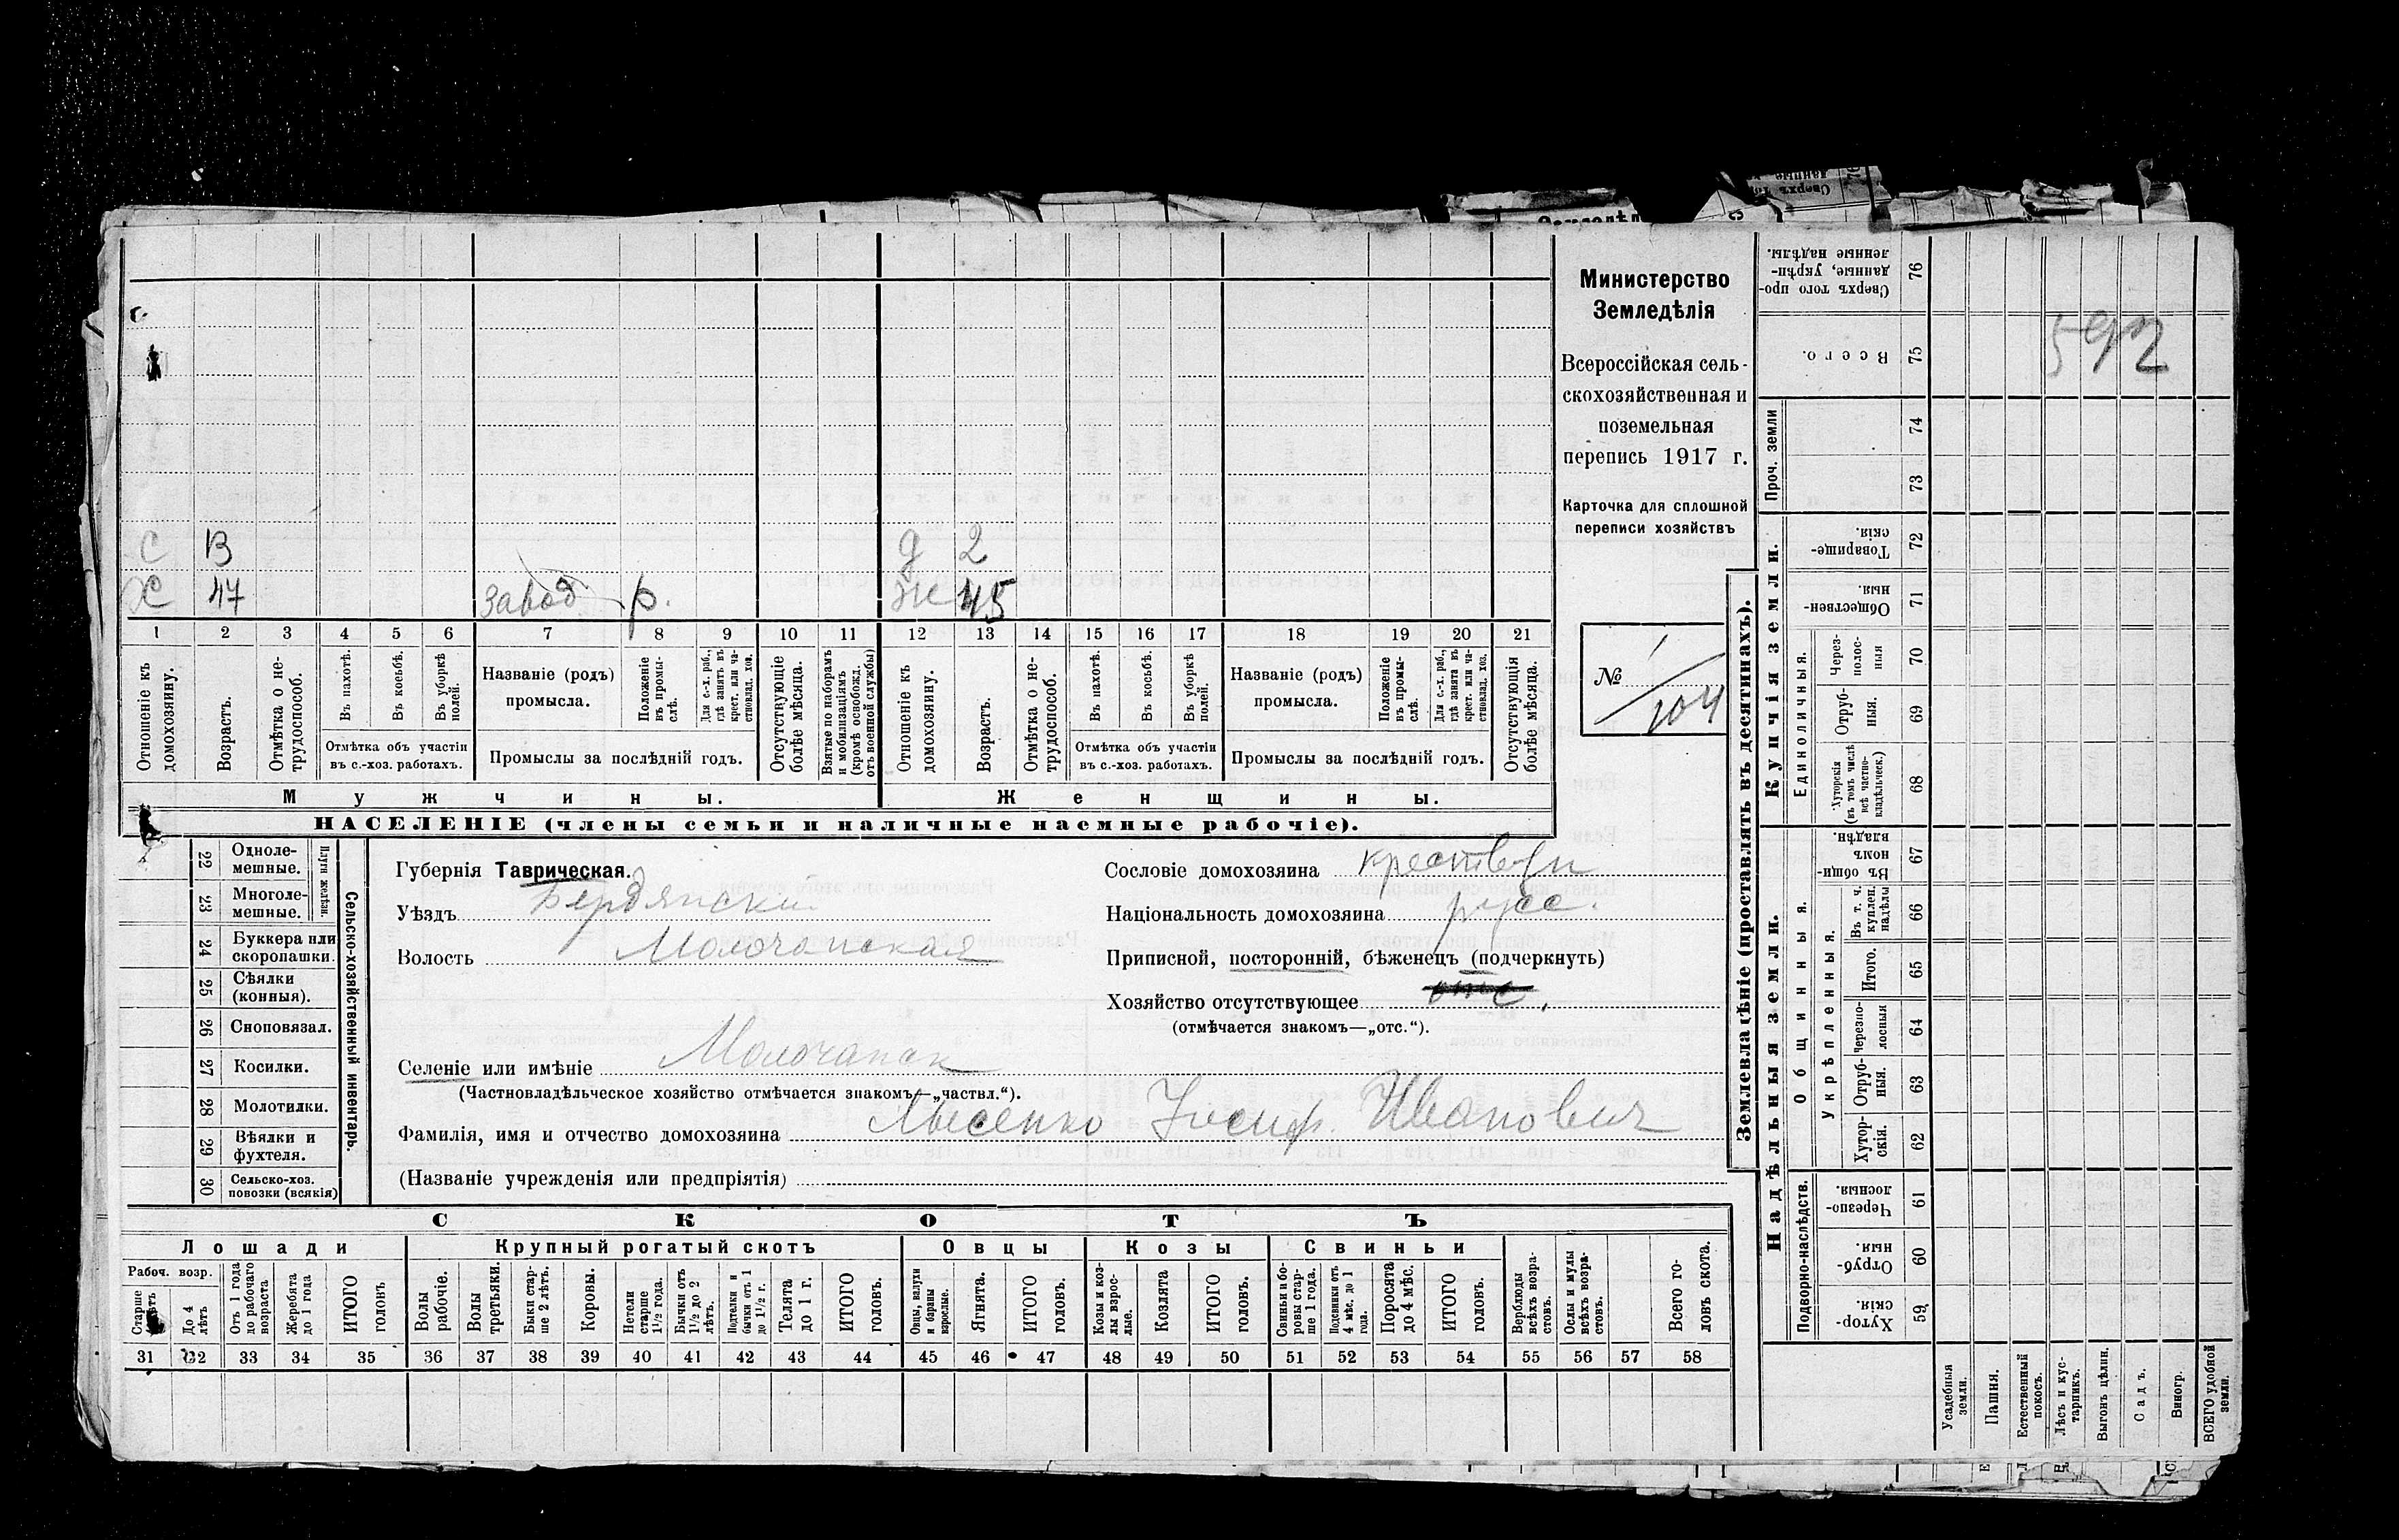 С В д 2
Х 47 завод р. ж 45
1 2 3 4 5 6 7 8 9 10 11 12 13 14 15 16 17 18 19 20 21
Отношеніе къ домохозяину.
Возрастъ.
Отмѣтка о нетрудоспособ.
Въ пахотѣ.
Въ косьбѣ.
Въ уборкѣ полей.
Отмѣтка объ участіи
въ с.-хоз. работахъ.
Названіе (родъ)
промысла.
Положеніе въ промыслѣ.
Для с.-х. раб., гдѣ занятъ въ крест. или частновлад. хоз.
Промыслы за послѣдній годъ.
Отсутствующіе болѣе мѣсяца.
Взятые по наборамъ и мобилизаціямъ (кромѣ освобожд. отъ военной службы)
Отношеніе къ домохозяину.
Возрастъ.
Отмѣтка о нетрудоспособ.
Въ пахотѣ.
Въ косьбѣ.
Въ уборкѣ полей.
Отмѣтка объ участіи
въ с.-хоз. работахъ.
Названіе (родъ)
промысла.
Положеніе въ промыслѣ.
Для с.-х. раб., гдѣ занята въ крест. или частновлад. хоз.
Промыслы за послѣдній годъ.
Отсутствующія болѣе мѣсяца.
Мужчины. Женщины.
НАСЕЛЕНІЕ (члены семьи и наличные наемные рабочіе).
Министерство
Земледѣлія
Всероссійская сель-
скохозяйственная и
поземельная
перепись 1917 г.
Карточка для сплошной
переписи хозяйствъ
№ 1/104
22 Одноле-
мешные.
23 Многоле-
мешные.
Плуги желѣзн.
24 Буккера или
скоропашки.
25 Сѣялки
(конныя).
26 Сноповязал.
27 Косилки.
28 Молотилки.
29 Вѣялки и
фухтеля.
30 Сельско-хоз.
повозки (всякія)
Сельско-хозяйственный инвентарь.
Губернія Таврическая.
Уѣздъ Бердянский
Волость Молочанская
Сословіе домохозяина
Національность домохозяина русс.
Приписной, посторонній, бѣженецъ (подчеркнуть)
Хозяйство отсутствующее отс.
(отмѣчается знакомъ—„отс.“).
Селеніе или имѣніе Молочанск
(Частновладѣльческое хозяйство отмѣчается знакомъ—„частвл.“).
Фамилія, имя и отчество домохозяина Лысенко Иосиф. Иванович
(Названіе учрежденія или предпріятія)
СКОТЪ
Лошади Крупный рогатый скотъ Овцы Козы Свиньи
Рабоч. возр.
Старше лѣтъ
До 4 лѣтъ
Отъ 1 года до рабочаго возраста
Жеребята до 1 года
ИТОГО головъ
Волы рабочіе.
Волы третьяки.
Быки старше 2 лѣтъ.
Коровы.
Нетели старше 1½ года.
Бычки отъ 1½ до 2 лѣтъ.
Подтелки и бычки отъ 1 до 1½ г.
Телята до 1 г.
ИТОГО головъ.
Овцы, валухи и бараны взрослые.
Ягнята.
ИТОГО головъ.
Козы и козлы взрослые.
Козлята
ИТОГО головъ.
Свиньи и боровы старше 1 года.
Подсвинки отъ 4 мѣс. до 1 года.
Поросята до 4 мѣс.
ИТОГО головъ.
Верблюды всѣхъ возрастовъ.
Ослы и мулы всѣхъ возрастовъ.
Всего головъ скота.
31 32 33 34 35 36 37 38 39 40 41 42 43 44 45 46 47 48 49 50 51 52 53 54 55 56 57 58
Землевладѣніе (проставлять въ десятинахъ).
Купчія земли.
Надѣльныя земли.
Сверхъ того проданные, укрѣпленные надѣлы. 76
Всего. 75
592
Проч. земли
74
73
Товарищескія. 72
Общественныя. 71
Единоличныя.
Черезполосныя 70
Отрубныя. 69
Хуторскія (въ томъ числѣ всѣ частновладѣльческ.) 68
Общинныя.
Въ общинномъ владѣн. 67
Укрѣпленныя.
Въ т. ч. куплен. надѣлы 66
Итого. 65
Черезполосныя 64
Отрубныя. 63
Хуторскія. 62
Подворно-наслѣдств.
Черезполосныя. 61
Отрубныя. 60
Хуторскія. 59
Усадебныя земли.
Пашня.
Естественный покосъ.
Лѣсъ и кустарникъ.
Выгонъ цѣлин.
Садъ.
Виногр.
ВСЕГО удобной земли.